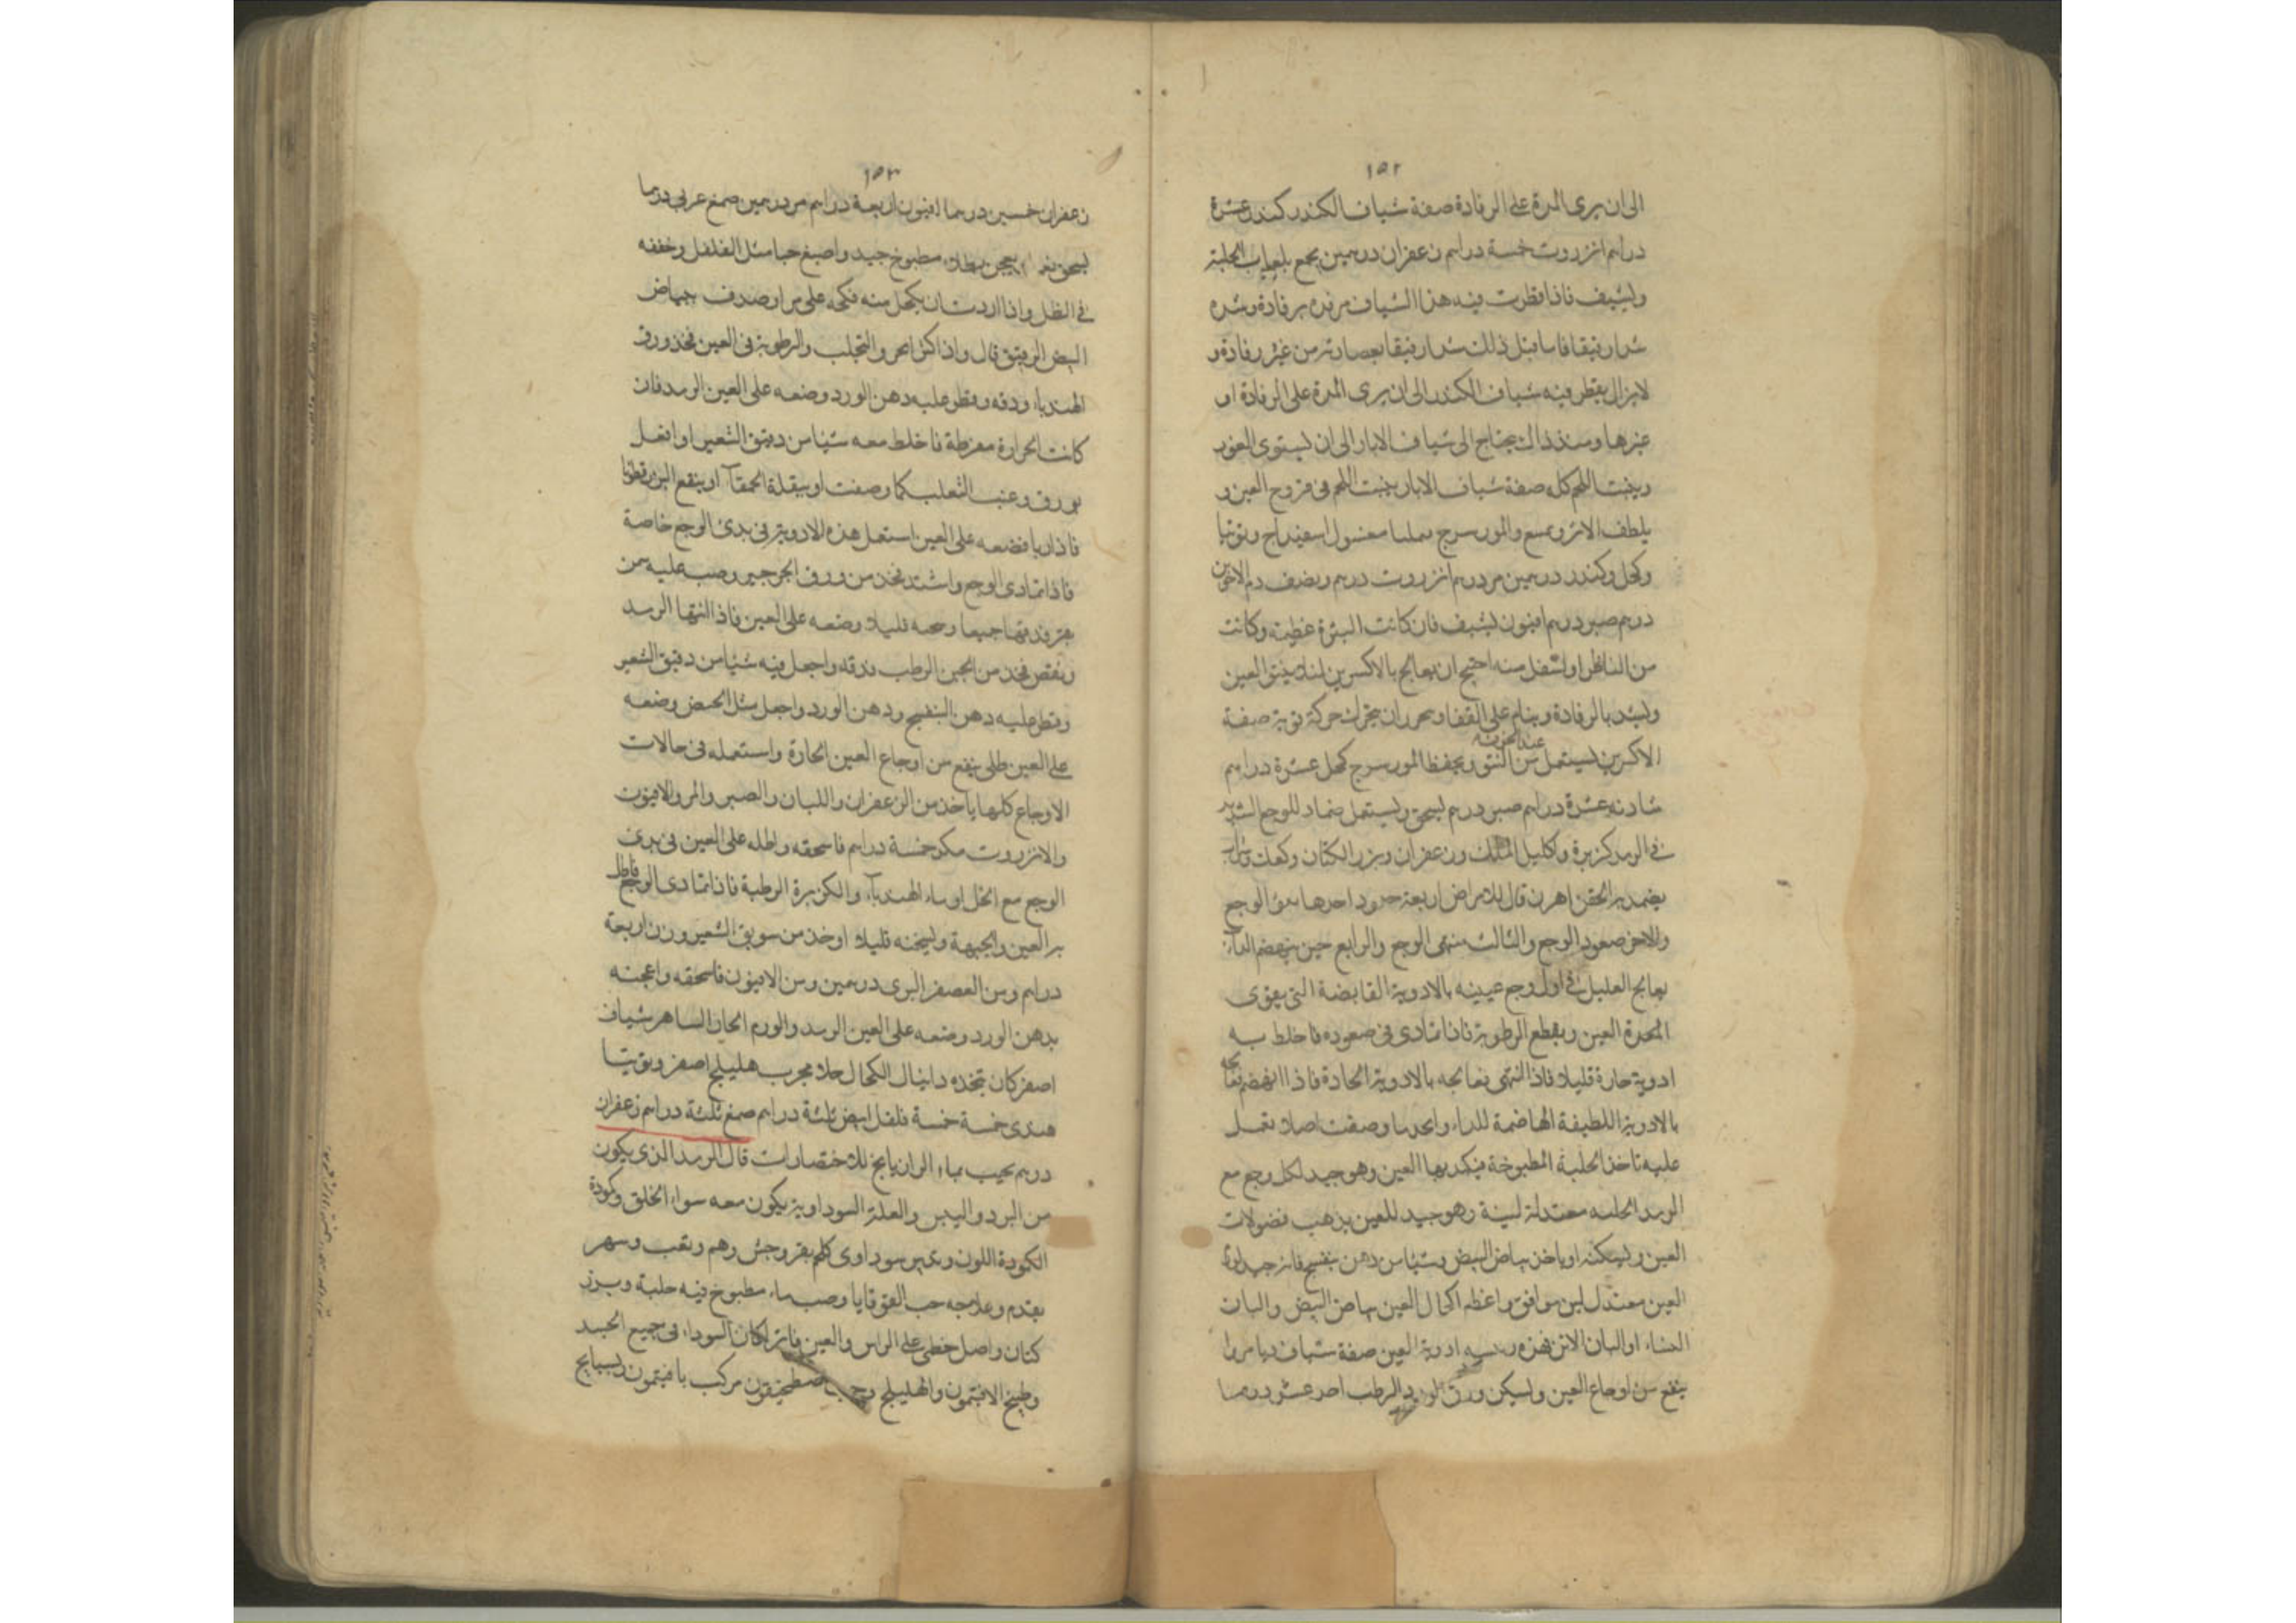 ١٥٢
الى ان يرى المدة على الرفادة صفة شياف الكندر كندر عشرة
دراهم انزروت خمسة دراهم زعفران درهمين يجمع بلعاب الحلبة
ويشيف فاذا قطرت فيه هذا الشياف من فده برفادة وشده
شدا رفيقا فاما قبل ذلك شدا رفيقا بعصابة من غير رفادة و
لا يزال يقطر فيه شياف الكندر الى ان يرى المدة على الرفادة او
غيرها ومنذ ذلك يحتاج الى شياف الابار الى ان يستوى الغور
وينبت اللحم كله صفة شياف الابار ينبت اللحم فى قروح العين و
يلطف الاثر ويمنع والمورسرج معسول اسفيداج وتوتيا
وكحل وكندر درهمين مر درهم انزروت درهم ونصف دم الاخوين
درهم صبر درهم افيون يشيف فان كانت البثرة عظيمة وكانت
من الناظر او اسفل منه احتيج ان يعالج بالاكسرين لئلا ينتو العين
ويشد بالرفادة وينام على القفا ويحذر ان يتحرك حركة قوية صفة
عند الحرقة
الاكسرين يستعمل من النتو ويحفظ المورسرج كحل عشرة دراهم
شادنه عشرة دراهم صبر درهم يسحق ويستعمل ضماد للوجع الشديد
فى الرمد كزبرة واكليل الملك وزعفران وبزر الكتان وكعك وشراب
يضمد به الحقن اهرن قال للامراض اربعة حدود احدها بدؤ الوجع
والاخر صعود الوجع والثالث منتهى الوجع والرابع حين ينهضم الداء
يعالج العليل فى اول وجع عينيه بالادوية القابضة التى يقوى
الحدرة العين ويقطع الرطوبة فاذا تمادى فى صعوده فاخلط به
ادوية حارة قليلا فاذا انتهى فعالجه بالادوية الحادة فاذا انهضم فعالجه
بالادوية اللطيفة الهاضمة للداء واحد ما وصفت اصلا تعمل
عليه تاخذ الحلبة المطبوخة فيكمد بها العين وهو جيد لكل وجع مع
الرمد الحلبه معتدلة لينة وهو جيد للعين يذهب فضولات
العين ويسكنه او ياخذ بياض البيض وشيئا من دهن بنفسج فانه جيد لوجع
العين معتدل لين موافق واعظم اكحال العين بياض البيض والبان
النساء او البان الاتن فهذه ادوية العين صفة شياف ديامرا
ينفع من اوجاع العين ويسكن ورق الورد الرطب احد عشر درهما
١٥٣
زعفران خمسين درهما افيون اربعة دراهم مر درهمين صمغ عربى درهما
يسحق نعما ويعجن بطلاء مطبوخ جيد واصبغ حبا مثل الفلفل وخففه
فى الظل واذا اردت ان يكحل منه فحكه على مرار صدف ببياض
البيض الرقيق قال واذا كثر الحر والتجلب والرطوبة فى العين فخذ ورق
الهندباء ودقه وقطر عليه دهن الورد وضعه على العين الرمد فان
كانت الحرارة مفرطة فاخلط معه شيئا من دقيق الشعير او افعل
بورق وعنب الثعلب كما وصفت او ببقلة الحمقاء او ينقع البزرقطونا
فاذا ربا فضعه على العين استعمل هذه الادوية فى بدئ الوجع خاصة
فاذا تمادى الوجع واشتد فخذ من ورق الجرجير وصب عليه من
خمر فدقها جميعا وسخنه قليلا وضعه على العين فاذا انتها الرمد
ونقص فخذ من الجبن الرطب ودقه واجعل فيه شيئا من دقيق الشعير
وقطر عليه دهن البنفسج ودهن الورد واجعل مثل الحمض وضعه
على العين طلى ينفع من اوجاع العين الحارة واستعمله فى حالات
الاوجاع كلها ياخذ من الزعفران واللبان والصبر والمر والافيون
والانزروت مكد خمسة دراهم فاسحقه واطله على العين فى بدئ
الوجع مع الخل او ماء الهندباء والكزبرة الرطبة فاذا تمادى الوجع فاطل
به العين والجبهة وليسخنه قليلا او خذ من سويق الشعير وزن اربعة
دراهم ومن العصفر البرى درهمين ومن الافيون فاسحقه واعجنه
بدهن الورد وضعه على العين الرمد والورم الحار الساهر شياف
اصفر كان يتخذه دانيال الكحال حلا مجرب هليلج اصفر وتوتيا
هندى خمسة خمسة فلفل ابيض ثلثة دراهم صمغ ثلثة دراهم زعفران
درهم يحبب بماء الرازيانج للاختصارات قال الرمد الذى يكون
من البرد واليبس والعلة السوداوية يكون معه سواء الخلق وكمودة
الكمودة اللون وتدبير سوداوى كلحم بقر وجبن وهم وتعب وسهر
يقدم وعلاجه حب القوقايا وصب ماء مطبوخ فيه حلبة وبزر
كتان واصل خطمى على الراس والعين فان كان السوداء فى جميع الجسد
وطبخ الافتيمون والهليلج وحب اصطمخيقون مركب بافتيمون وبسبايج